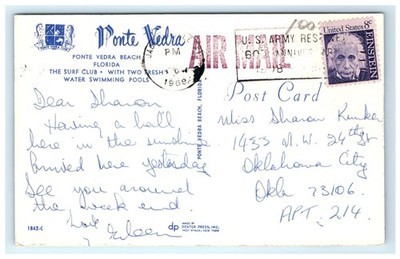 Ponte Vedra
PONTE VEDRA BEACH
FLORIDA
THE SURF CLUB • WITH TWO FRESH
WATER SWIMMING POOLS
Dear Sharon
Having a ball
here in the sunshine
Arrived here yesterday
See you around
the week end.
Love
Eileen
1842-C
PONTE VEDRA BEACH, FLORIDA
MADE BY
DEXTER PRESS, INC.
WEST NYACK, NEW YORK
dp
PM
1968
AIR MAIL
U.S. ARMY RES
60TH ANNIVER
100
United States 8c
EINSTEIN
Post Card
Miss Sharon
1433 N.W. 24th St
Oklahoma City
Okla 73106.
APT. 214.